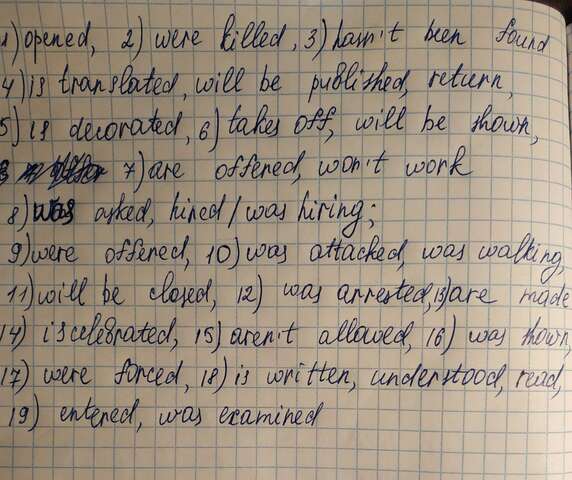 1) opened, 2) were killed, 3) hasn't been found
4) is translated, will be published, return,
5) is decorated, 6) takes off, will be shown,
7) are offered, won't work
8) asked, hired / was hiring;
9) were offered, 10) was attacked, was walking,
11) will be closed, 12) was arrested, 13) are made
14) is celebrated, 15) aren't allowed, 16) was shown,
17) were forced, 18) is written, understood, read,
19) entered, was examined